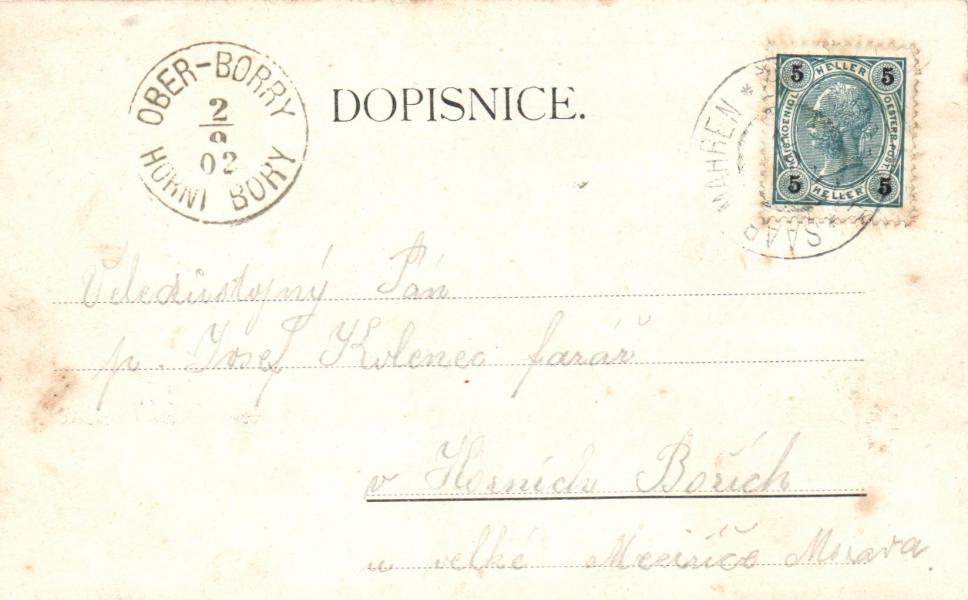 OBER-BORRY
2/9
02
HORNÍ BORY
DOPISNICE.
SAAR MÄHREN *
5 HELLER 5
KAIS. KOENIGL. OESTERR. POST
5 HELLER 5
Veledůstojný Pán
p. Josef Kolenec farář
v Horních Bořích
u velké Meziříče Morava